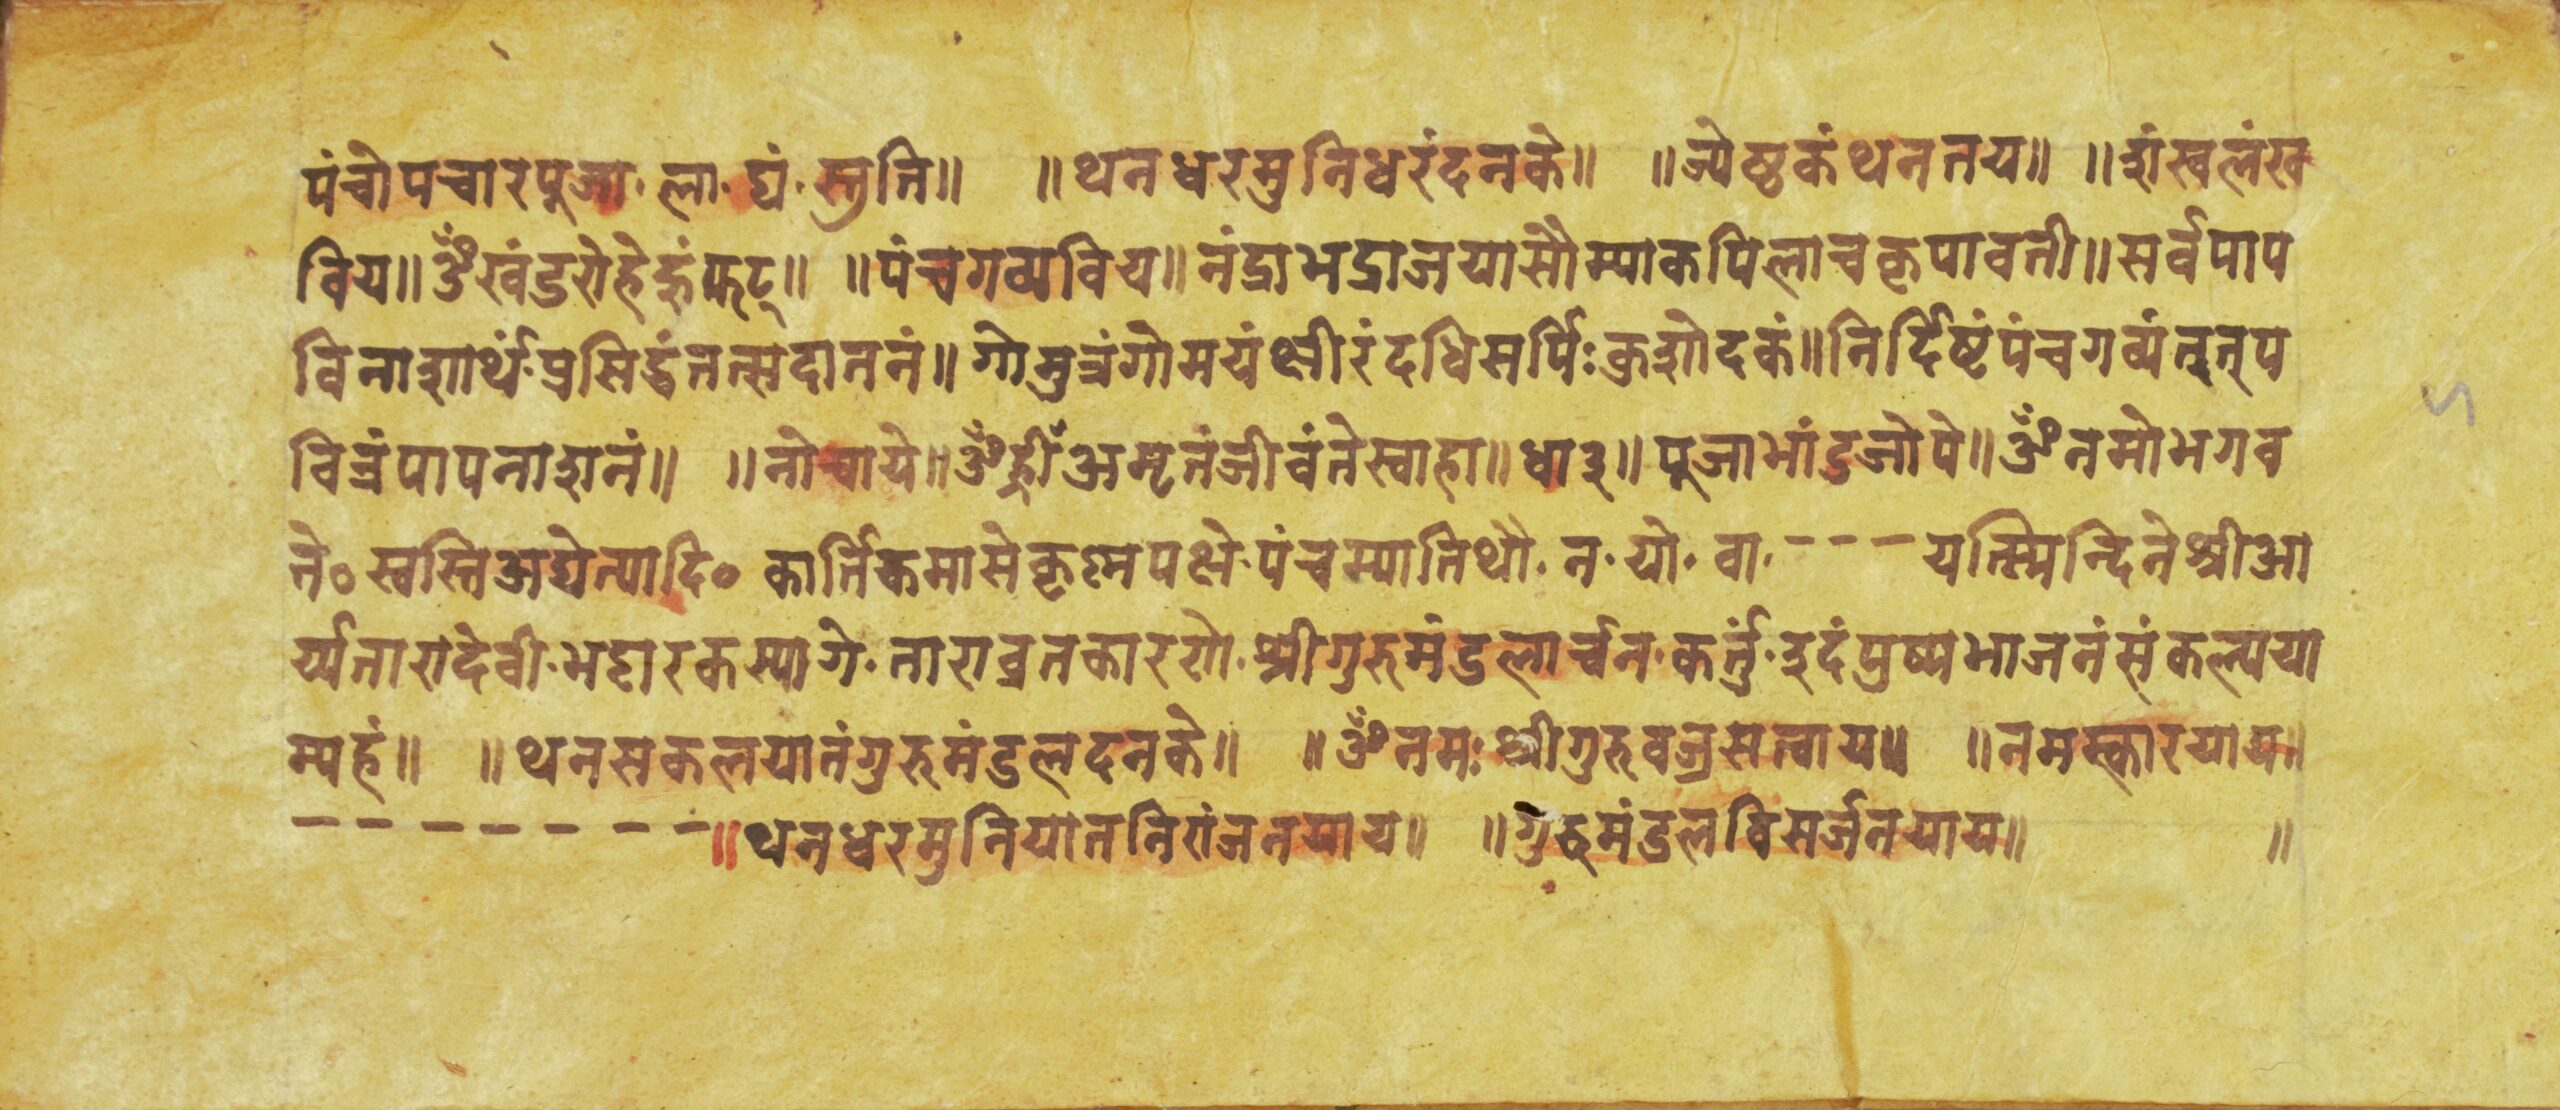 पंचोपचारपूजा॰ ला॰ द्यं॰ स्तुति॥ ॥थनधरमुनिधरंदनके॥ ॥ज्येष्ठकंथनतय॥ ॥शंखलंख
विय॥ॐखंडरोहेहूंफट्॥ ॥पंचगव्यविय॥नंद्राभद्राजयासौम्याकपिलाचकृपावती॥सर्वपाप
विनाशार्थं॰प्रसिद्धंतत्सदाननं॥गोमुत्रंगोमयंक्षीरंदधिसर्पिःकुशोदकं॥निर्दिष्टंपंचगव्यंतत्प
वित्रंपापनाशनं॥ ॥नोचाये॥ॐह्रीँअमृतंजीवंतेस्वाहा॥धा३॥पूजाभांडजोपे॥ॐनमोभगव
ते॰स्वस्तिअद्येत्यादि॰ कार्तिकमासेकृष्णपक्षे॰पंचम्यातिथौ॰ न॰ यो॰ वा॰ – – – यत्स्मिन्दिनेश्रीआ
र्य्यतारादेवी॰भट्टारकस्यागे॰ ताराव्रतकारणे॰ श्रीगुरुमंडलार्च्चन॰कर्तुं॰इदंपुष्पभाजनंसंकल्पया
म्यहं॥ ॥थनसकलयातंगुरुमंडलदनके॥ ॥ॐनमःश्रीगुरुवज्रसत्वाय॥ ॥नमस्कारयाय॥
– – – – – – –॥थनधरमुनियातनिरांजनयाय॥ ॥गुरुमंडलविसर्जनयाय॥ ॥